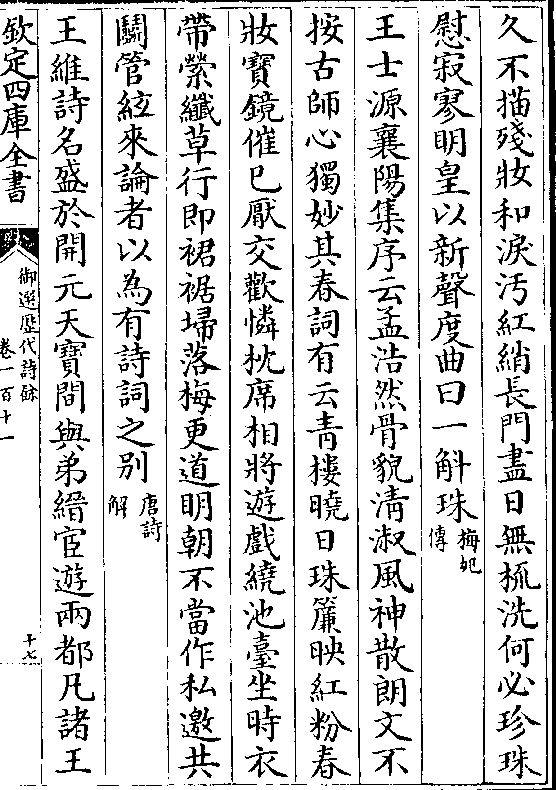 久不描殘妝和淚汚紅綃長門盡日無梳洗何必珍珠
慰寂寥明皇以新聲度曲曰一斛珠梅妃傳
王士源襄陽集序云孟浩然骨貌淸淑風神散朗文不
按古師心獨妙其春詞有云靑樓曉日珠簾映紅粉春
妝寶鏡催已厭交歡憐枕席相將遊戲繞池臺坐時衣
帶縈纖草行即裙裾埽落梅更道明朝不當作私邀共
鬭管絃來論者以為有詩詞之别唐詩解
王維詩名盛於開元天寶間與弟縉宦遊兩都凡諸王
欽定四庫全書
御選歷代詩餘
卷一百十一
十七